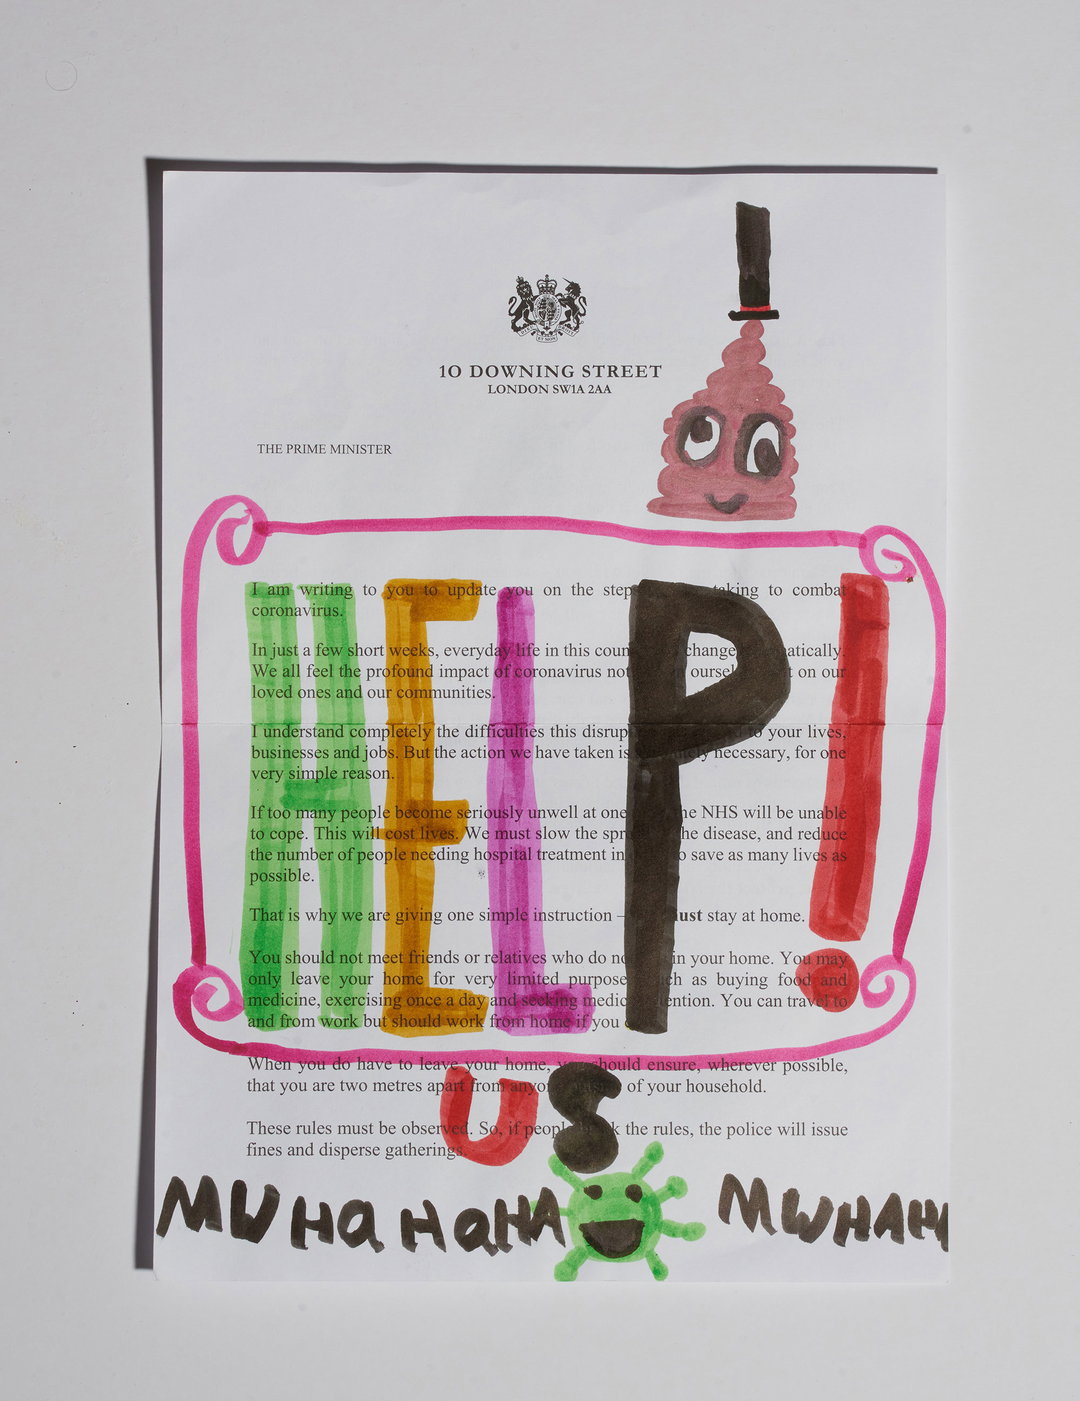 10 DOWNING STREET
LONDON SW1A 2AA
THE PRIME MINISTER
I am writing to you to update you on the steps taking to combat
coronavirus.
In just a few short weeks, everyday life in this country changed dramatically.
We all feel the profound impact of coronavirus not ourselves but on our
loved ones and our communities.
I understand completely the difficulties this disruption to your lives,
businesses and jobs. But the action we have taken is absolutely necessary, for one
very simple reason.
If too many people become seriously unwell at one the NHS will be unable
to cope. This will cost lives. We must slow the spread the disease, and reduce
the number of people needing hospital treatment in to save as many lives as
possible.
That is why we are giving one simple instruction – must stay at home.
You should not meet friends or relatives who do not in your home. You may
only leave your home for very limited purposes such as buying food and
medicine, exercising once a day and seeking medical attention. You can travel to
and from work but should work from home if you
When you do have to leave your home, you should ensure, wherever possible,
that you are two metres apart from anyone outside of your household.
These rules must be observed. So, if people break the rules, the police will issue
fines and disperse gatherings.
HELP!
US
MWHaHaHaHA MWHAHA